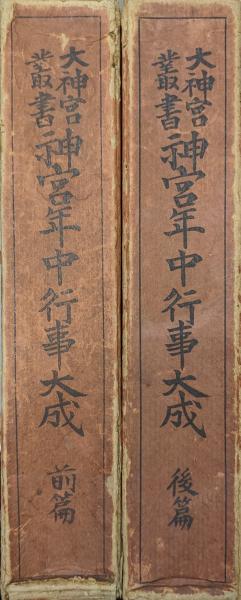 大神宮叢書
神宮年中行事大成
前篇
大神宮叢書
神宮年中行事大成
後篇